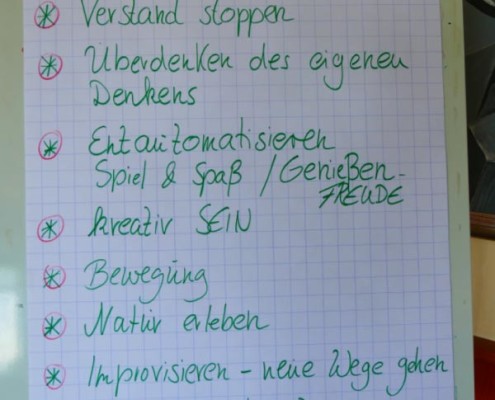 Verstand stoppen
Überdenken des eigenen
Denkens
Entautomatisieren
Spiel & Spaß / Genießen -
FREUDE
kreativ SEIN
Bewegung
Natur erleben
Improvisieren - neue Wege gehen